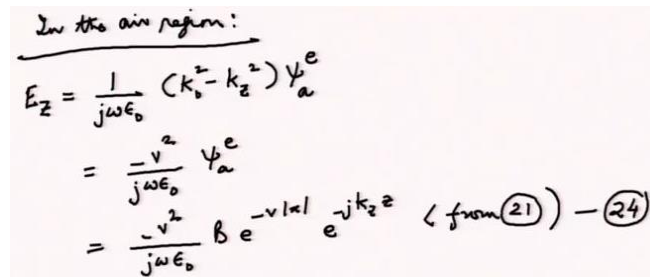 In the air region:
E_z = 1/(jωε₀) (k₀² - k_z²) ψ_a^e
= -v²/(jωε₀) ψ_a^e
= -v²/(jωε₀) B e^(-v|x|) e^(-jk_z z) (from (21)) - (24)